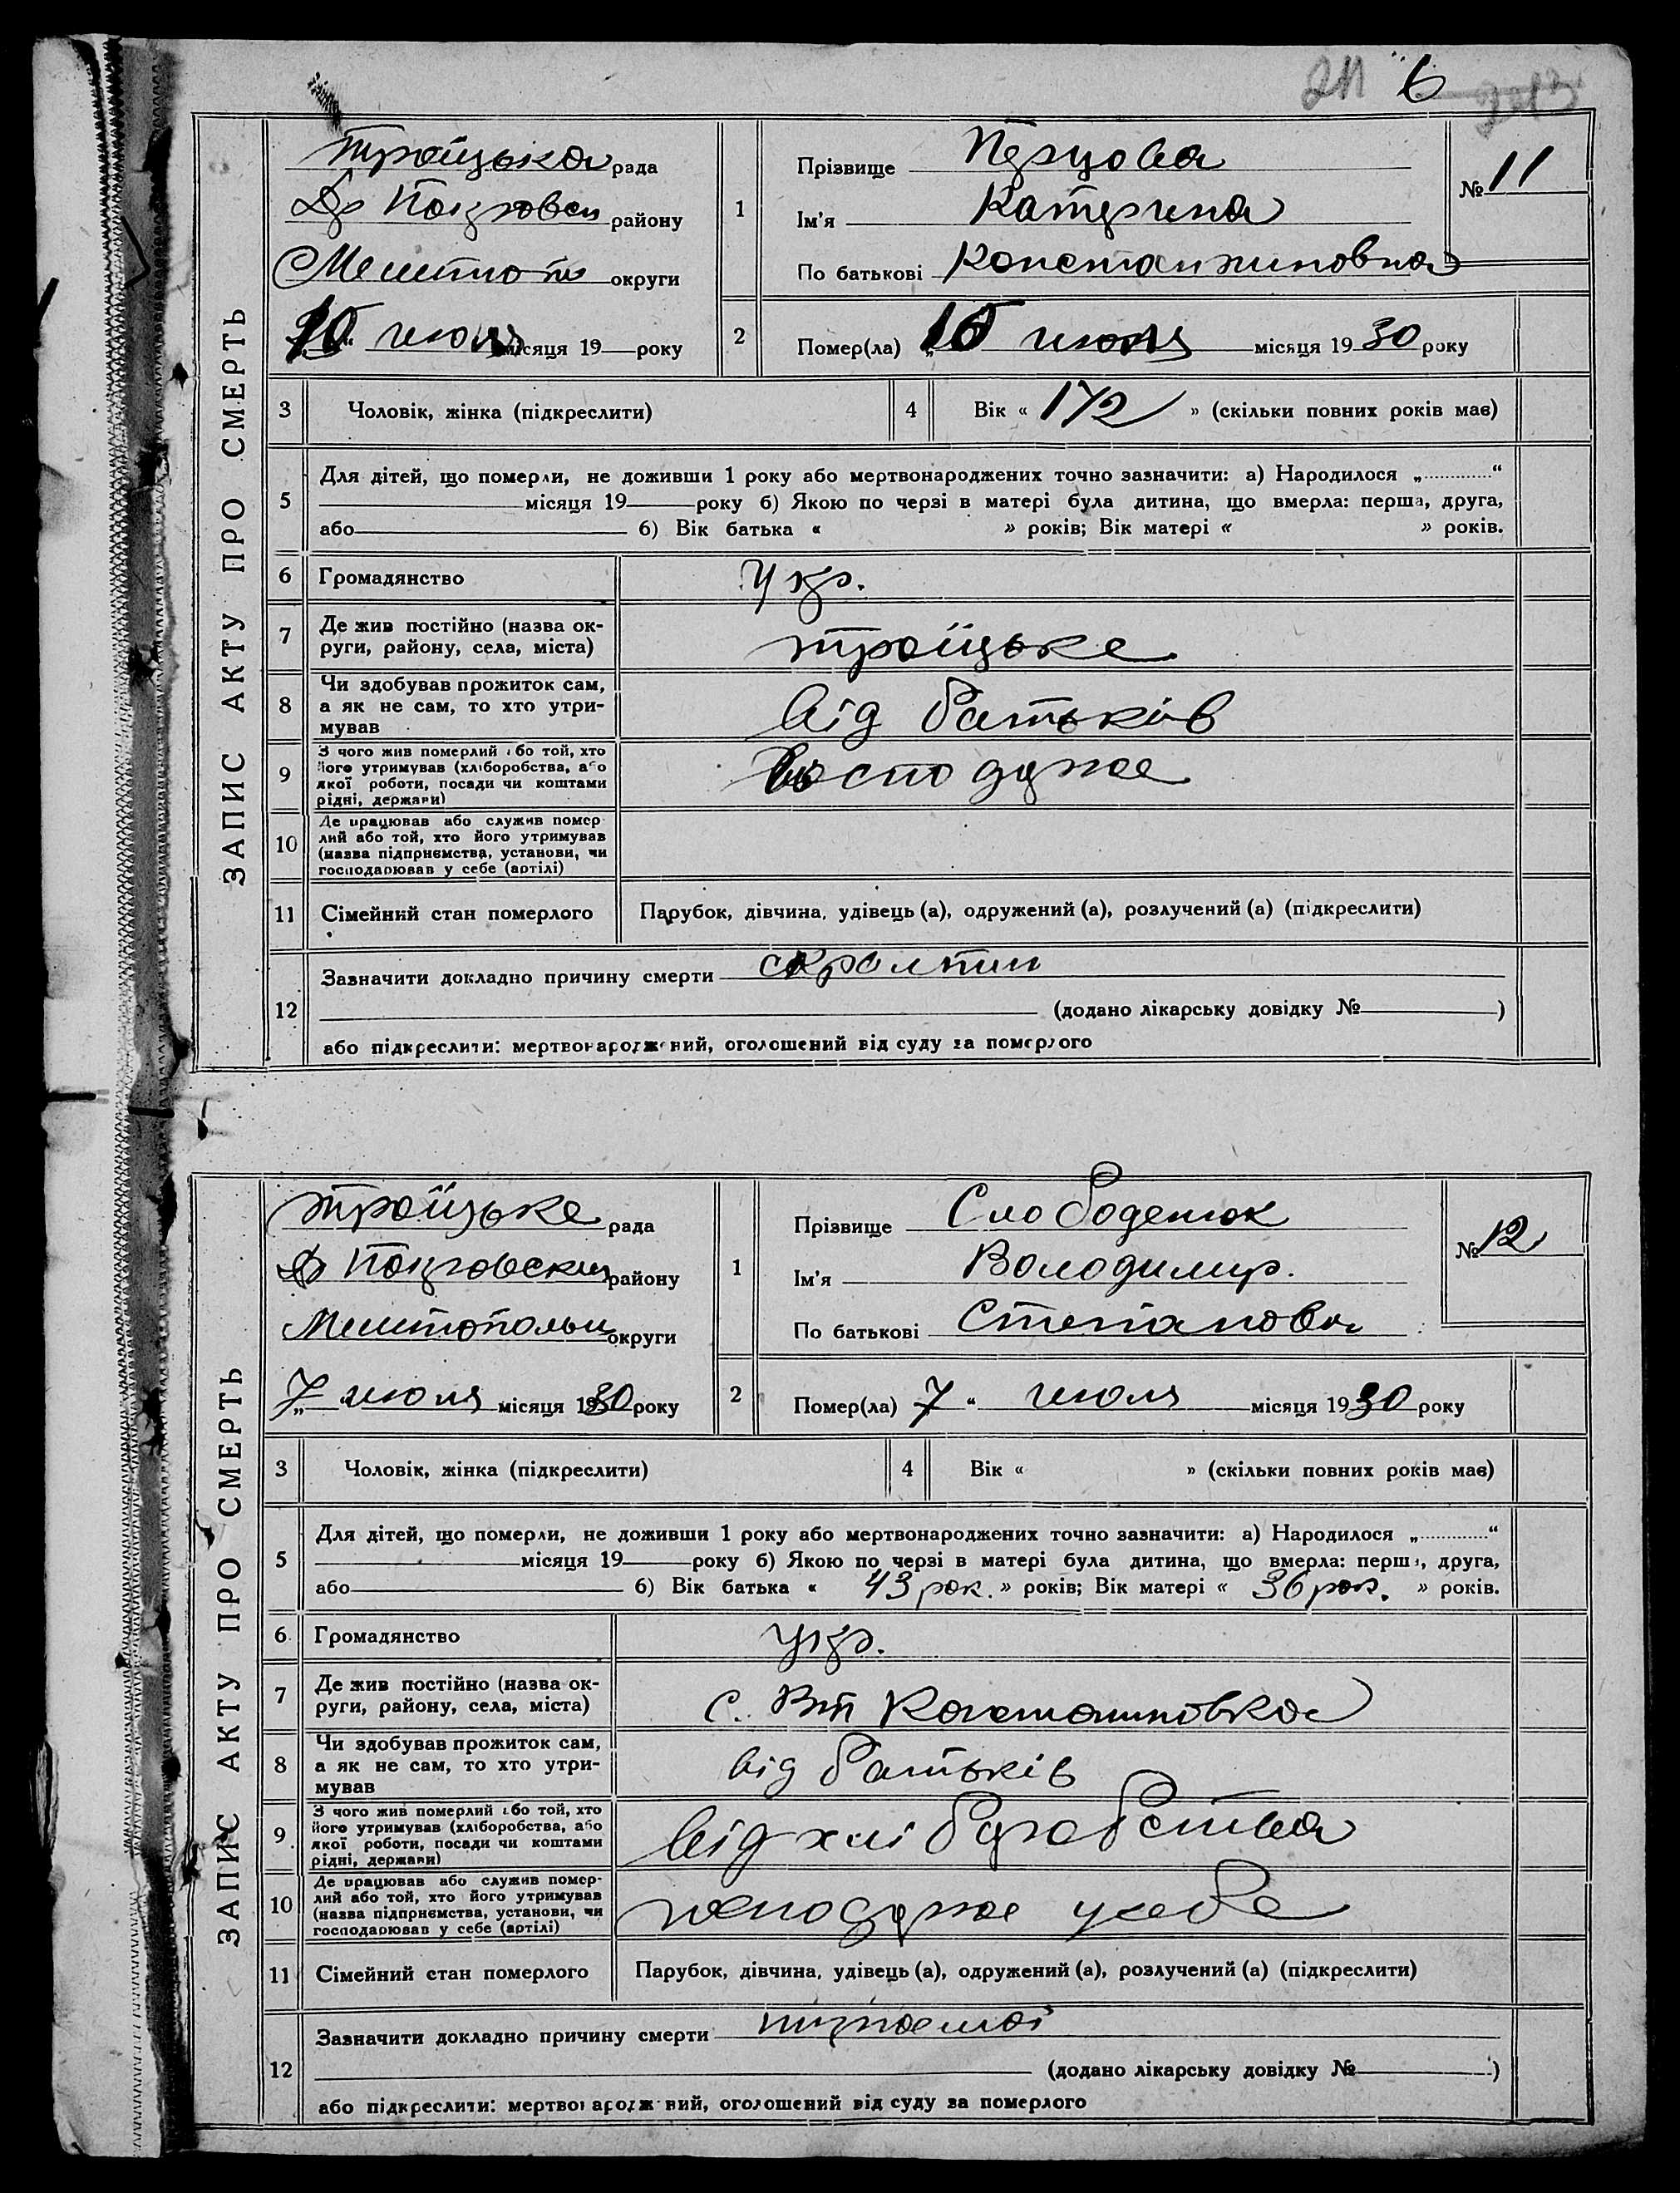 211 6
ЗАПИС АКТУ ПРО СМЕРТЬ
Троїцька рада
району
округи
10 июля місяця 19 року
1
Прізвище Перцова
Ім'я Катерина
По батькові Константиновна
№ 11
2
Помер(ла) „10 июля місяця 1930 року
3 Чоловік, жінка (підкреслити)
4 Вік « 1 1/2 » (скільки повних років має)
5 Для дітей, що померли, не доживши 1 року або мертвонароджених точно зазначити: а) Народилося „ “
місяця 19 року б) Якою по черзі в матері була дитина, що вмерла: перша, друга,
або б) Вік батька « » років; Вік матері « » років.
6 Громадянство укр.
7 Де жив постійно (назва ок-
руги, району, села, міста) Троїцьке
8 Чи здобував прожиток сам,
а як не сам, то хто утри-
мував від батьків
9 З чого жив померлий або той, хто
його утримував (хліборобства, або
якої роботи, посади чи коштами
рідні, держави)
10 Де працював або служив помер-
лий або той, хто його утримував
(назва підприємства, установи, чи
господарював у себе (артілі)
11 Сімейний стан померлого Парубок, дівчина, удівець (а), одружений (а), розлучений (а) (підкреслити)
12 Зазначити докладно причину смерти
(додано лікарську довідку № )
або підкреслити: мертвонароджений, оголошений від суду за померлого
ЗАПИС АКТУ ПРО СМЕРТЬ
Троїцьке рада
району
округи
„7 июля місяця 1930 року
1
Прізвище Слободенюк
Ім'я Володимир.
По батькові Степанов
№ 12
2
Помер(ла) 7 “ июля місяця 1930 року
3 Чоловік, жінка (підкреслити)
4 Вік « » (скільки повних років має)
5 Для дітей, що померли, не доживши 1 року або мертвонароджених точно зазначити: а) Народилося „ “
місяця 19 року б) Якою по черзі в матері була дитина, що вмерла: перша, друга,
або б) Вік батька « 43 рок. » років; Вік матері « 36 рок. » років.
6 Громадянство укр.
7 Де жив постійно (назва ок-
руги, району, села, міста) с.
8 Чи здобував прожиток сам,
а як не сам, то хто утри-
мував від батьків
9 З чого жив померлий або той, хто
його утримував (хліборобства, або
якої роботи, посади чи коштами
рідні, держави) від хліборобства
10 Де працював або служив помер-
лий або той, хто його утримував
(назва підприємства, установи, чи
господарював у себе (артілі) у себе
11 Сімейний стан померлого Парубок, дівчина, удівець (а), одружений (а), розлучений (а) (підкреслити)
12 Зазначити докладно причину смерти
(додано лікарську довідку № )
або підкреслити: мертвонароджений, оголошений від суду за померлого